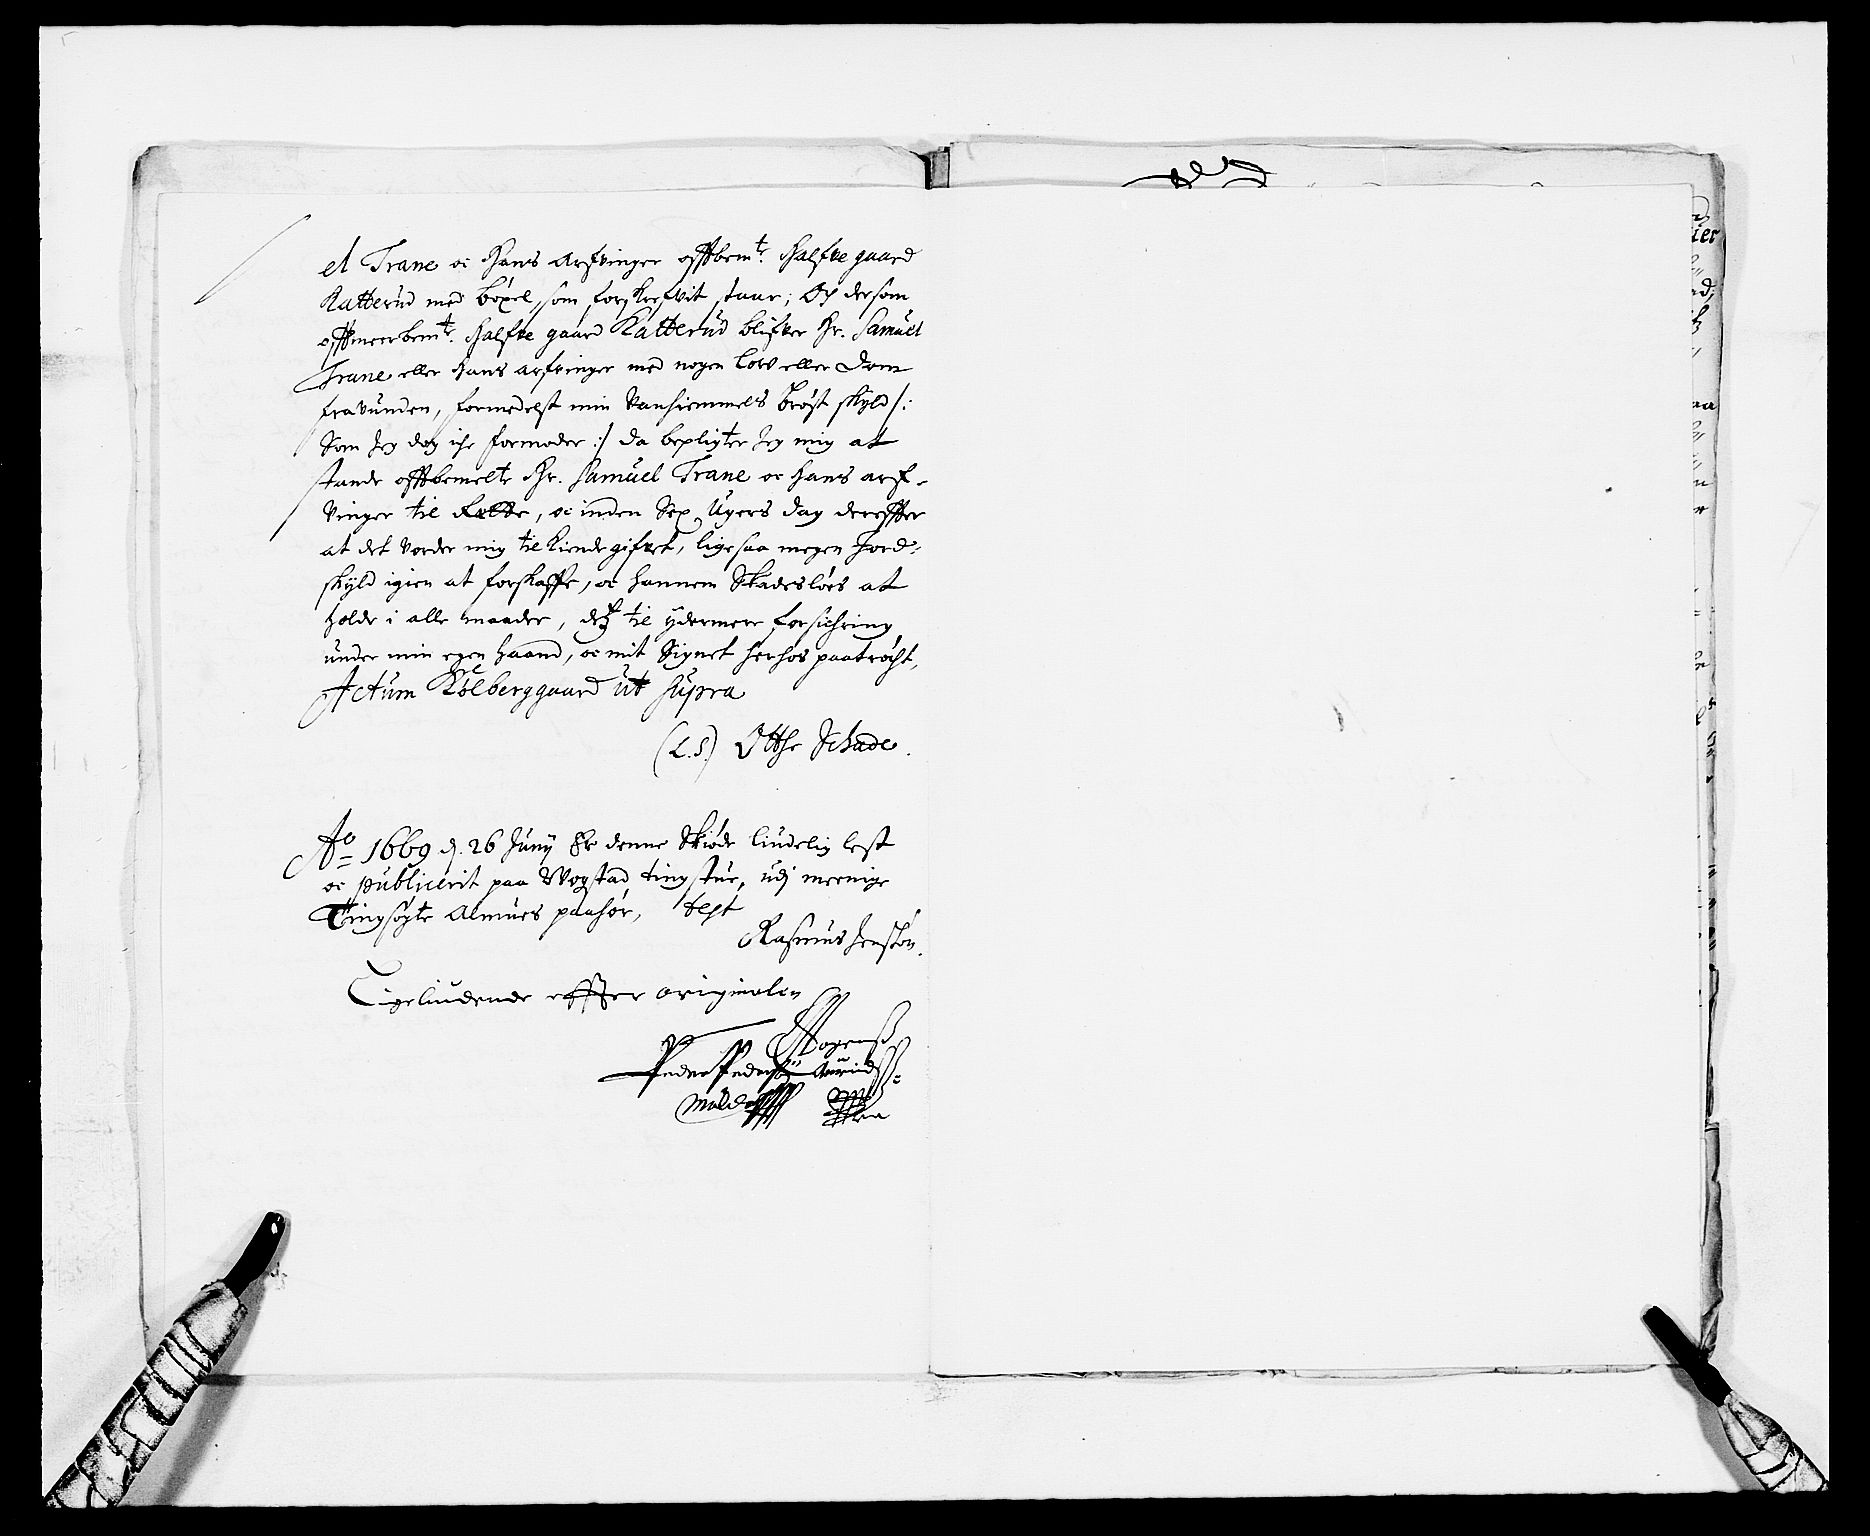 el Trane oc Hans Arfvinger offtbemte. Halfve gaard
Katterud med böxel, som forskrefvit staar; Och dersom
offtmeerbemte. Halfve gaard Katterud blifver Hr. Samuel
Trane eller hans arfvinger med nogen Low eller Dom
fravunden, formedelst min Vanhiemmels bröst skyld /:
Som Jeg dog iche formoder :/ da bepligter Jeg mig at
stande offtbemelte Hr. Samuel Trane oc hans arf-
vinger til Rette, oc inden Sex Ugers dag derefter
at det vorder mig tilkiendegifvet, ligesaa megen Jord-
skyld igien at forskaffe, oc hannem Skadeslöes at
holde i alle maader, des til ydermere forsichring
under min egen haand, oc mit Signet herhos paatröcht,
Actum Kölberggaard ut supra
(L.S.) Otthe Schade.
Ao 1669 d. 26 Junij Er denne Skiöde liudelig lest
oc publicerit paa Wogstad tingstue, udj meenige
Tingsögte Almues paahör, test
Rasmus Jensön.
Ligeliudende effter originalen
Mogenss
Peder Pedersön Lauridss: